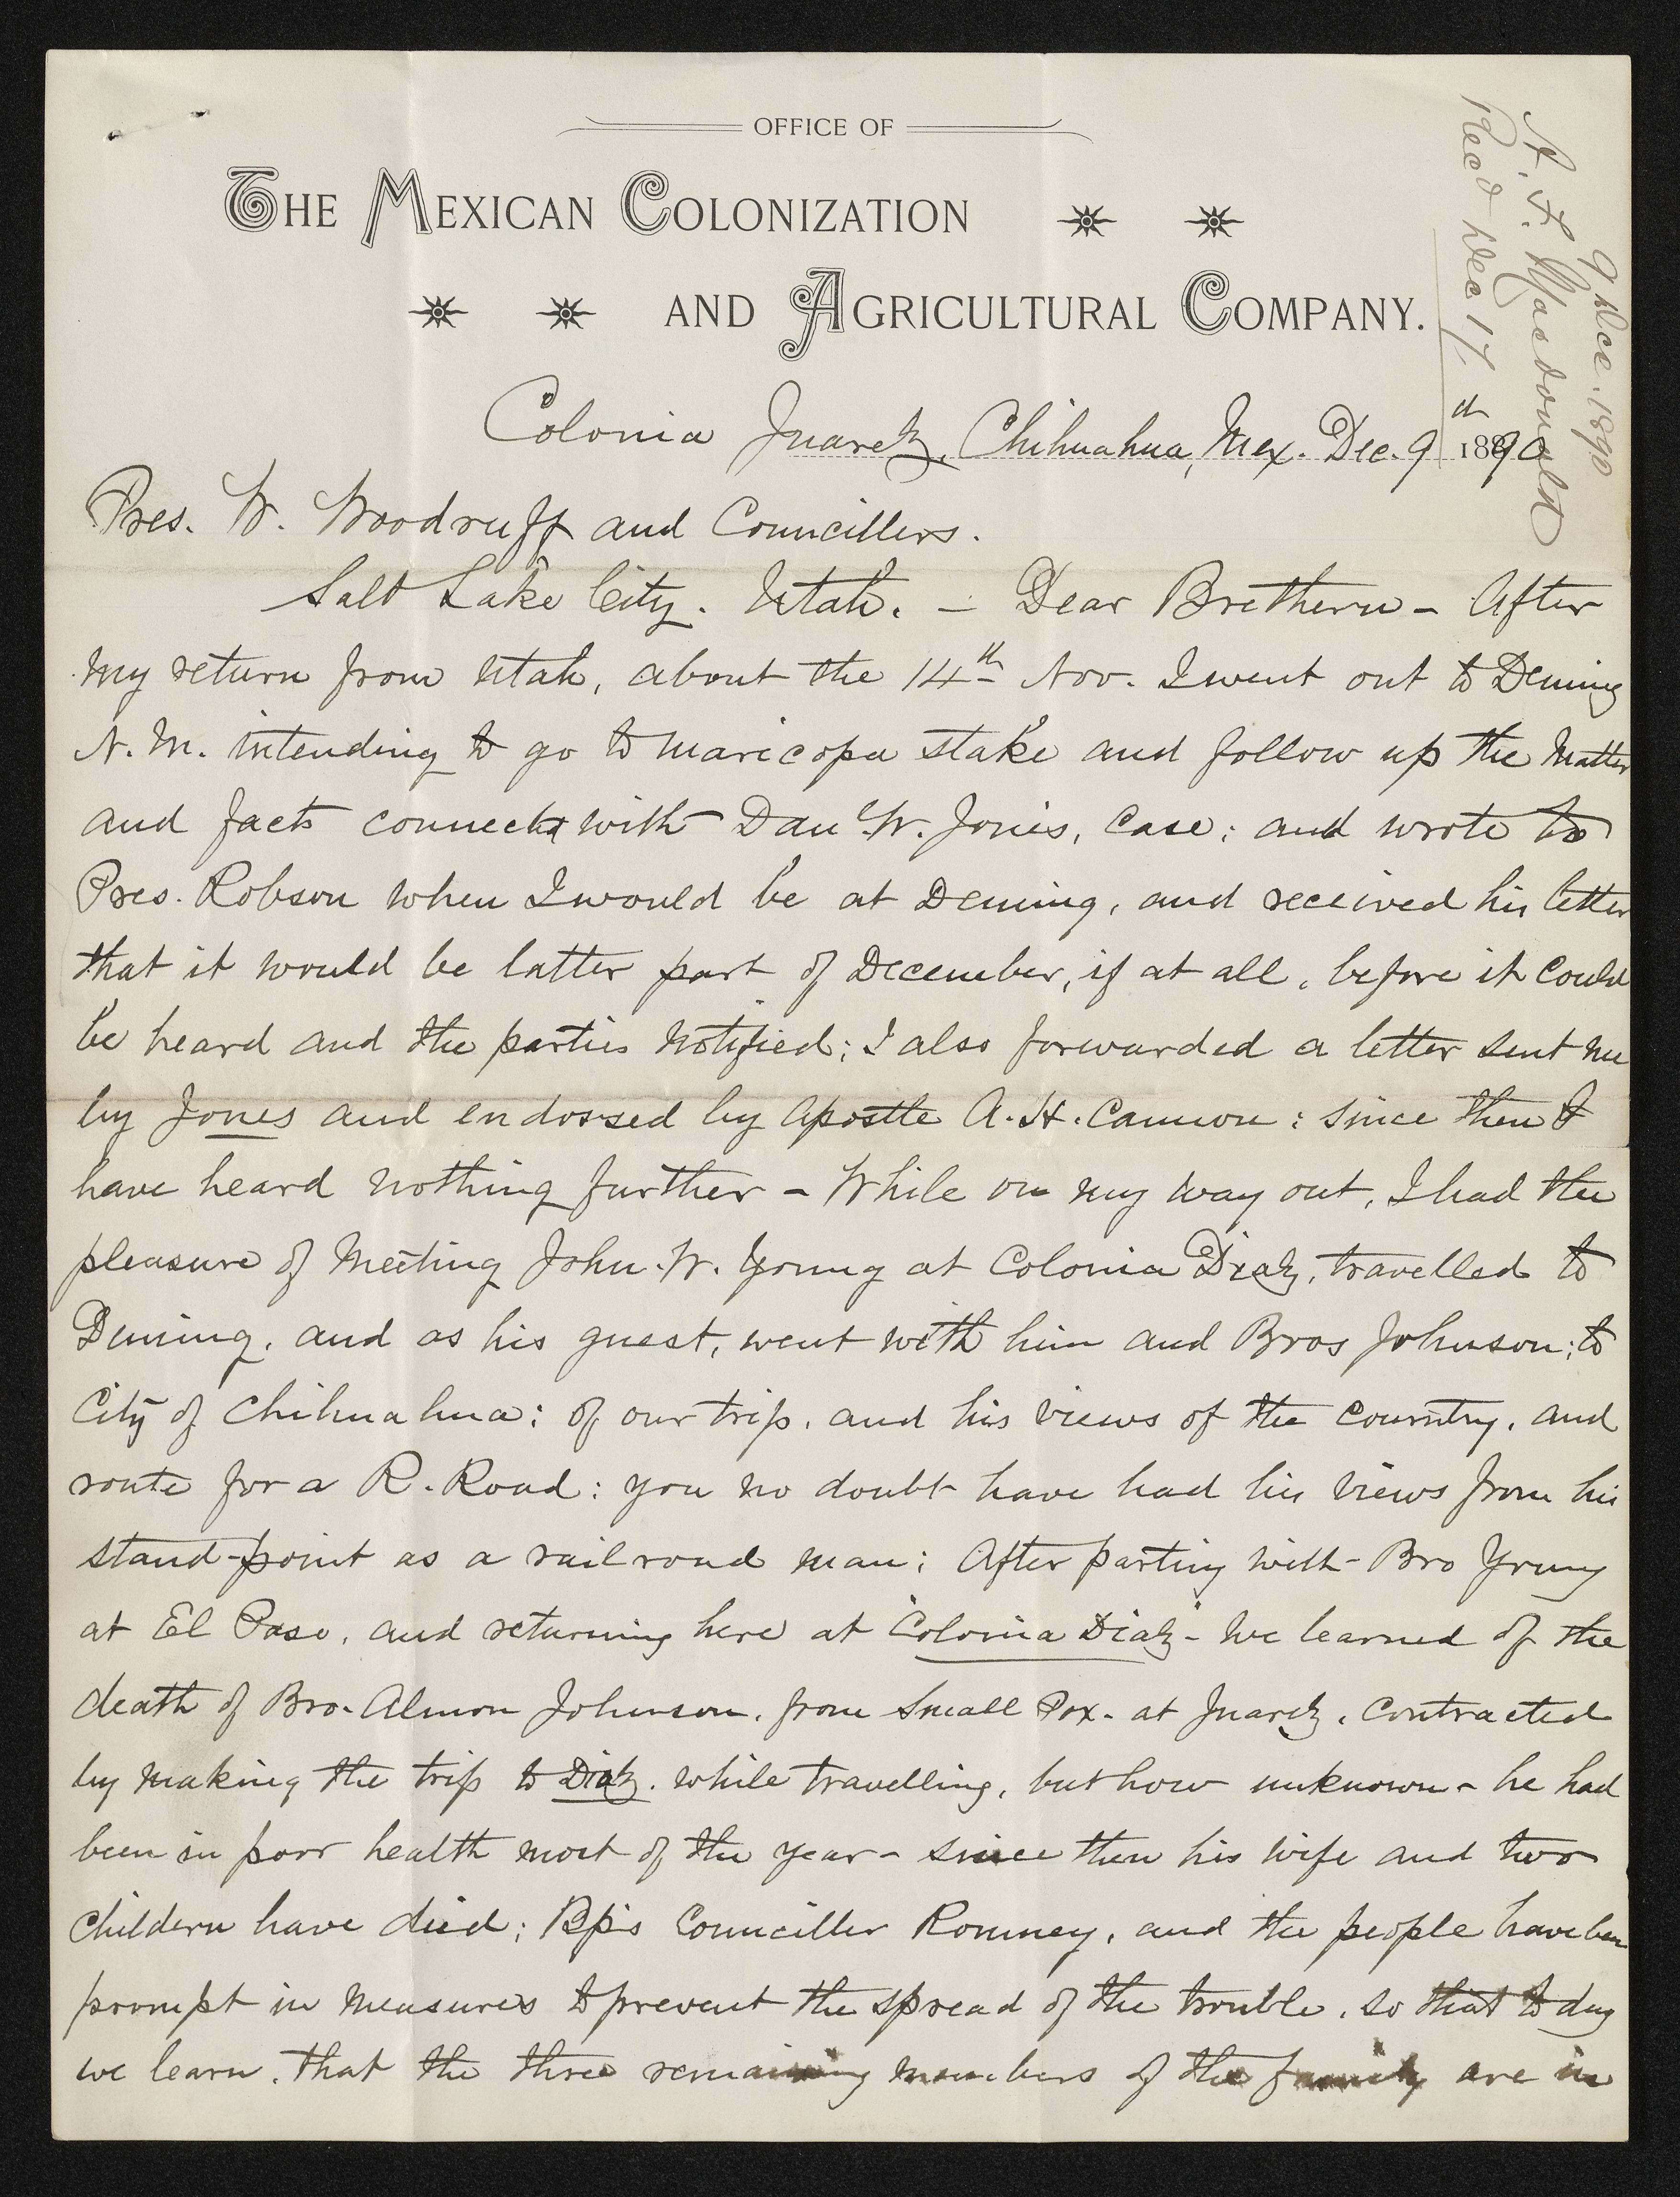 OFFICE OF
THE MEXICAN COLONIZATION
AND AGRICULTURAL COMPANY.
9 Dec. 1890
A. F. Macdonald
Recd Dec 17.
Colonia Juarez, Chihuahua, Mex. Dec. 9th 1890
Pres. W. Woodruff and Councillers.
Salt Lake City. Utah. — Dear Brethern - After
my return from Utah, about the 14th Nov. I went out to Deming
N. M. intending to go to Maricopa stake and follow up the Matter
and facts connected with Dan W. Jones, Case: and wrote to
Pres. Robson when I would be at Deming, and received his letter
that it would be latter part of December, if at all, before it could
be heard and the parties Notified; I also forwarded a letter sent me
by Jones and endorsed by Apostle A. H. Cannon: since then I
have heard nothing further - While on my way out, I had the
pleasure of Meeting John. W. Young at Colonia Diaz, travelled to
Deming, and as his guest, went with him and Bros Johnson; to
City of Chihuahua; of our trip, and his views of the country, and
route for a R. Road: you no doubt have had his views from his
stand-point as a railroad man; After parting with Bro Young
at El Paso, and returning here at "Colonia Diaz" - We learned of the
death of Bro. Almon Johnson, from Small Pox - at Juarez, Contracted
by making the trip to Diaz. while travelling, but how unknown - he had
been in poor health most of the year - since then his wife and two
childern have died; Bps Counciller Romney, and the people have been
prompt in measures to prevent the spread of the trouble, so that to day
we learn, that the three remaining members of the family are in